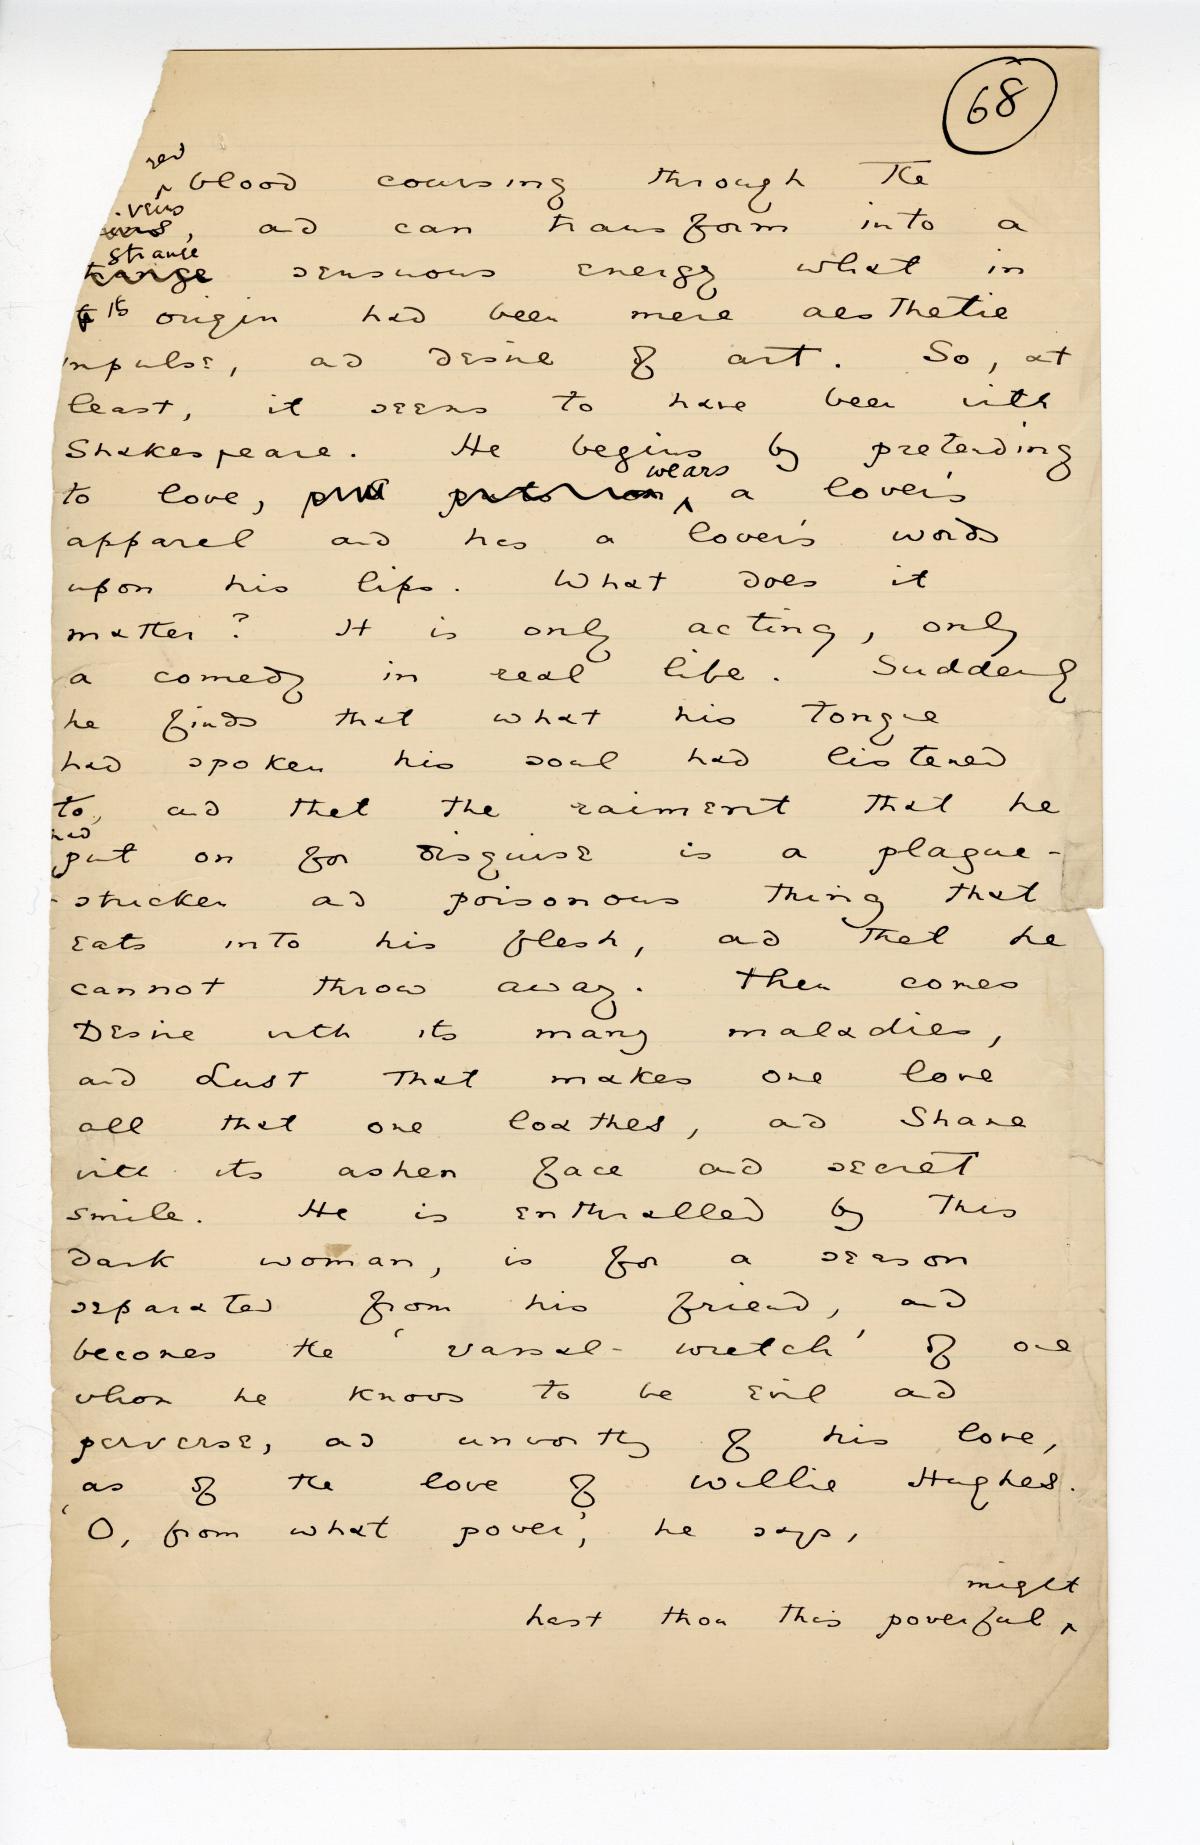 68
red
blood coursing through the
veins
, and can transform into a
strange
sensuous energy what in
its origin had been mere aesthetic
mpulse, and desire of art. So, at
least, it seems to have been with
Shakespeare. He begins by pretending
wears
to love, put a lover's
apparel and has a lover's words
upon his lips. What does it
matter? It is only acting, only
a comedy in real life. Suddenly
he finds that what his tongue
had spoken his soul had listened
to, and that the raiment that he
had
put on for disguise is a plague-
-stricken and poisonous thing that
eats into his flesh, and that he
cannot throw away. Then comes
Desire with its many maladies,
and Lust that makes one love
all that one loathes, and Shame
with its ashen face and secret
smile. He is enthralled by this
dark woman, is for a season
separated from his friend, and
becomes the 'vassal-wretch' of one
whom he knows to be evil and
perverse, and unworthy of his love,
as of the love of Willie Hughes.
'O, from what power', he says,
might
hast thou this powerful